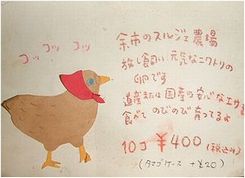 コッ コッ コッ
余市のスルジェ農場
放し飼い 元気なニワトリの
卵です
道産または国産の安心なエサを
食べて のびのび育ってるよ
10コ ¥400 (税込み)
(タマゴケース +¥20)